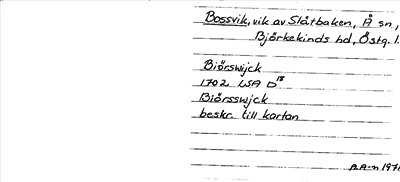 Bossvik, vik av Slätbaken, Å sn,
Björkekinds hd, Östg. l.
Biörswijck
1702 LSA D18
Biörsswjck
beskr. till kartan
1970